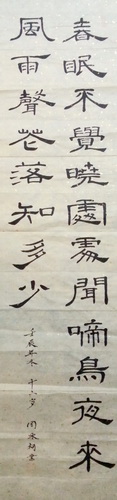 春眠不覺曉處處聞啼鳥夜來
風雨聲花落知多少
壬辰年冬 十六岁